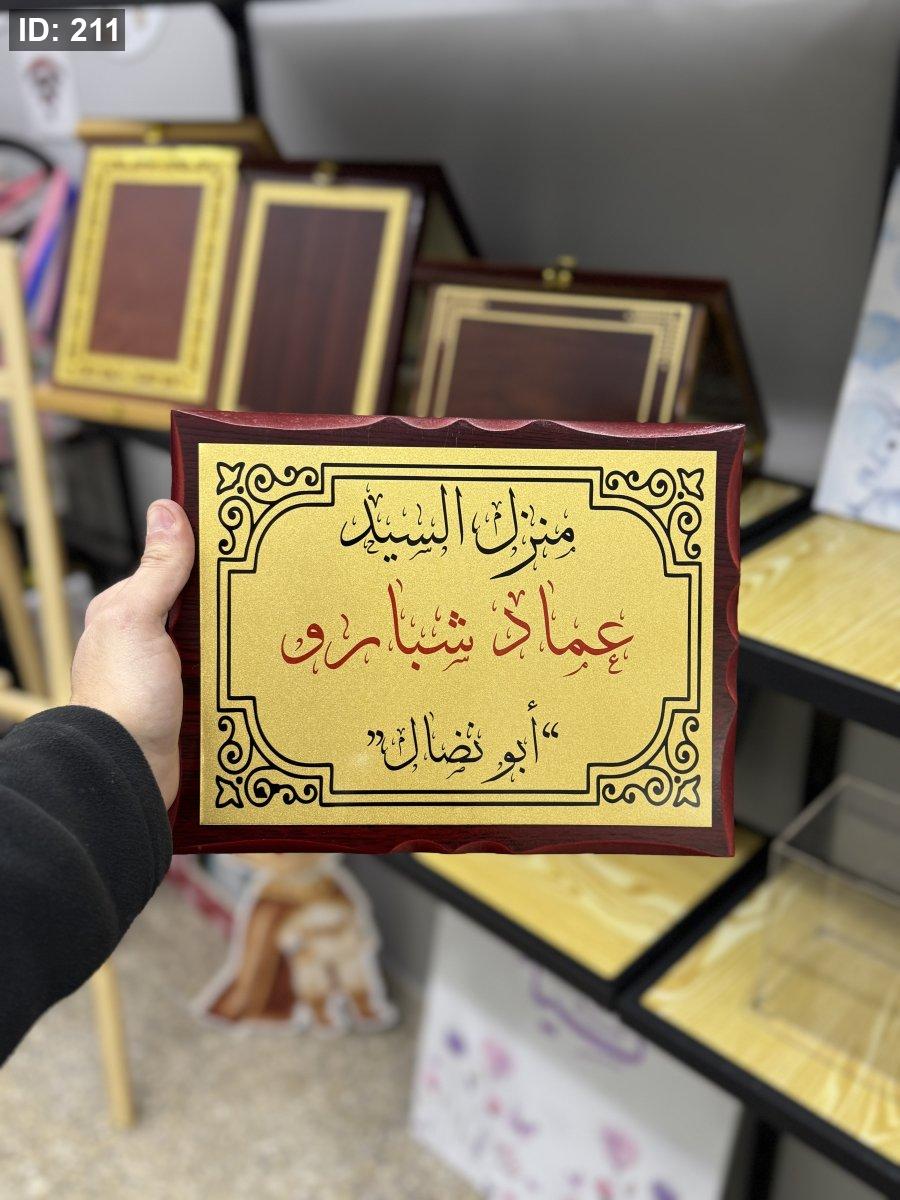 ID: 211
منزل السيد
عماد شبارو
“أبو نضال”